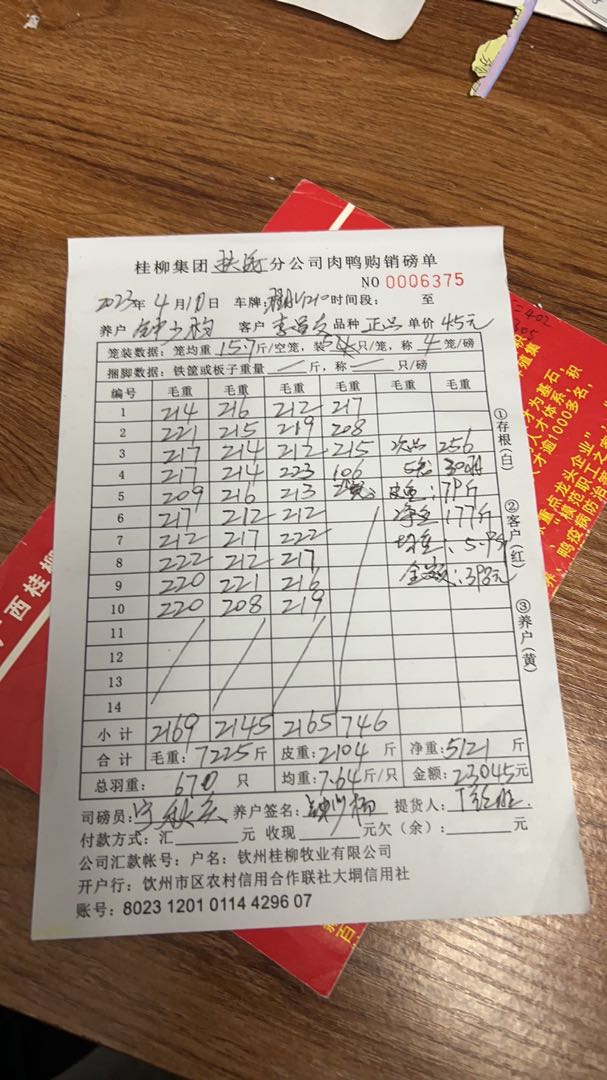 桂柳集团 分公司肉鸭购销磅单
NO 0006375
2023年 4月10日 车牌: 时间段: 至
养户 客户 李 品种 正品 单价 4.5元
笼装数据: 笼均重 15.7斤/空笼, 装 5 只/笼, 称 4 笼/磅
捆脚数据: 铁筐或板子重量 斤, 称 只/磅
编号 毛重 毛重 毛重 毛重 毛重 毛重
1 214 216 212 217
2 221 215 219 208
3 217 214 212 215 次品 256
4 217 214 223 106 5笼
5 209 216 213 皮重: 79斤
6 217 212 212 净重: 177斤
7 212 217 222 均重: 5.9斤
8 222 212 217 金额: 398元
9 220 221 216
10 220 208 219
11
12
13
14
小计 2169 2145 2165 746
合计 毛重: 7225斤 皮重: 2104 斤 净重: 5121 斤
总羽重: 670 只 均重: 7.64斤/只 金额: 23045元
司磅员: 养户签名: 提货人:
付款方式: 汇 元 收现 元欠(余): 元
公司汇款帐号: 户名: 钦州桂柳牧业有限公司
开户行: 钦州市区农村信用合作联社大垌信用社
账号: 8023 1201 0114 4296 07
①存根(白)
②客户(红)
③养户(黄)
广西桂柳
=402
305